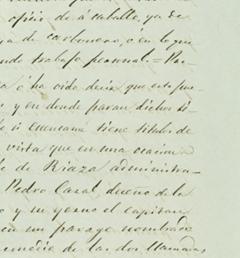 oficio de á caballo, ya de
ya de carbonero, ó en lo que
ndo trabajo personal. = Par-
a ó ha oido decir que este pue-
y en donde paran dichos ti-
si Cuencana tiene titulos de
vista que en una ocasion
de Riaza administra-
Pedro Casal dueno de la
o y su yerno el capitan
en un parage nombrado
de las dos llamadas